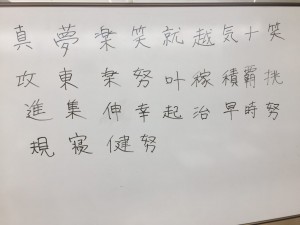 真夢楽笑就越気十笑
攻東栞努叶稼積覇挑
進集伸幸起治早時努
規寝健努